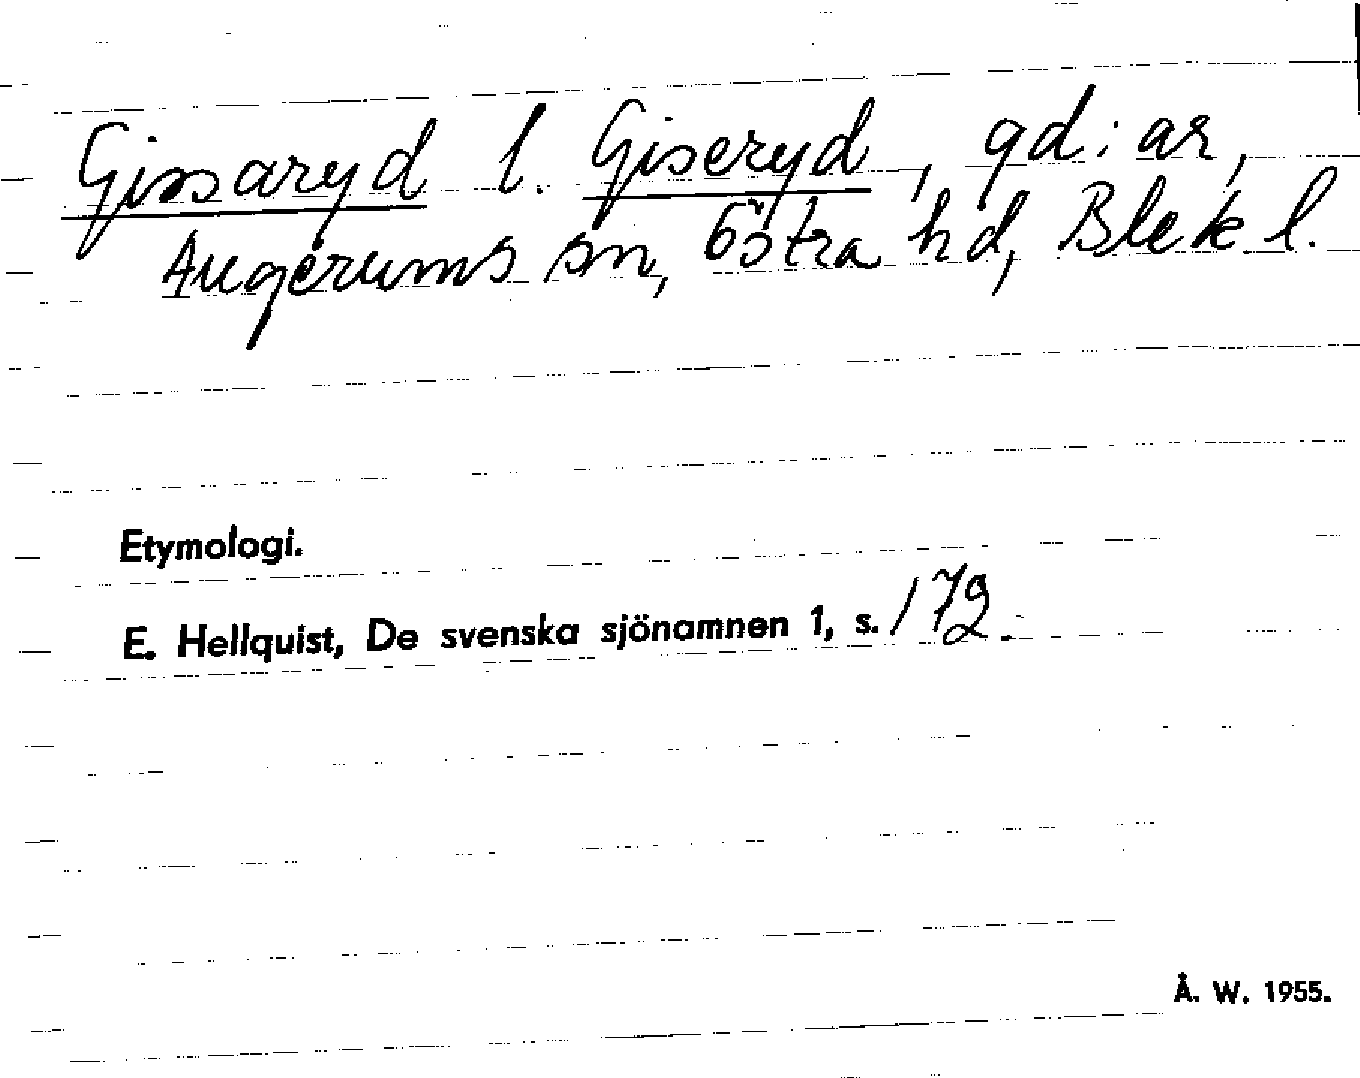 Gissaryd l. Giseryd, gd:ar,
Augerums sn, Östra hd, Blek l.
Etymologi.
E. Hellquist, De svenska sjönamnen 1, s. 172.
Å. W. 1955.